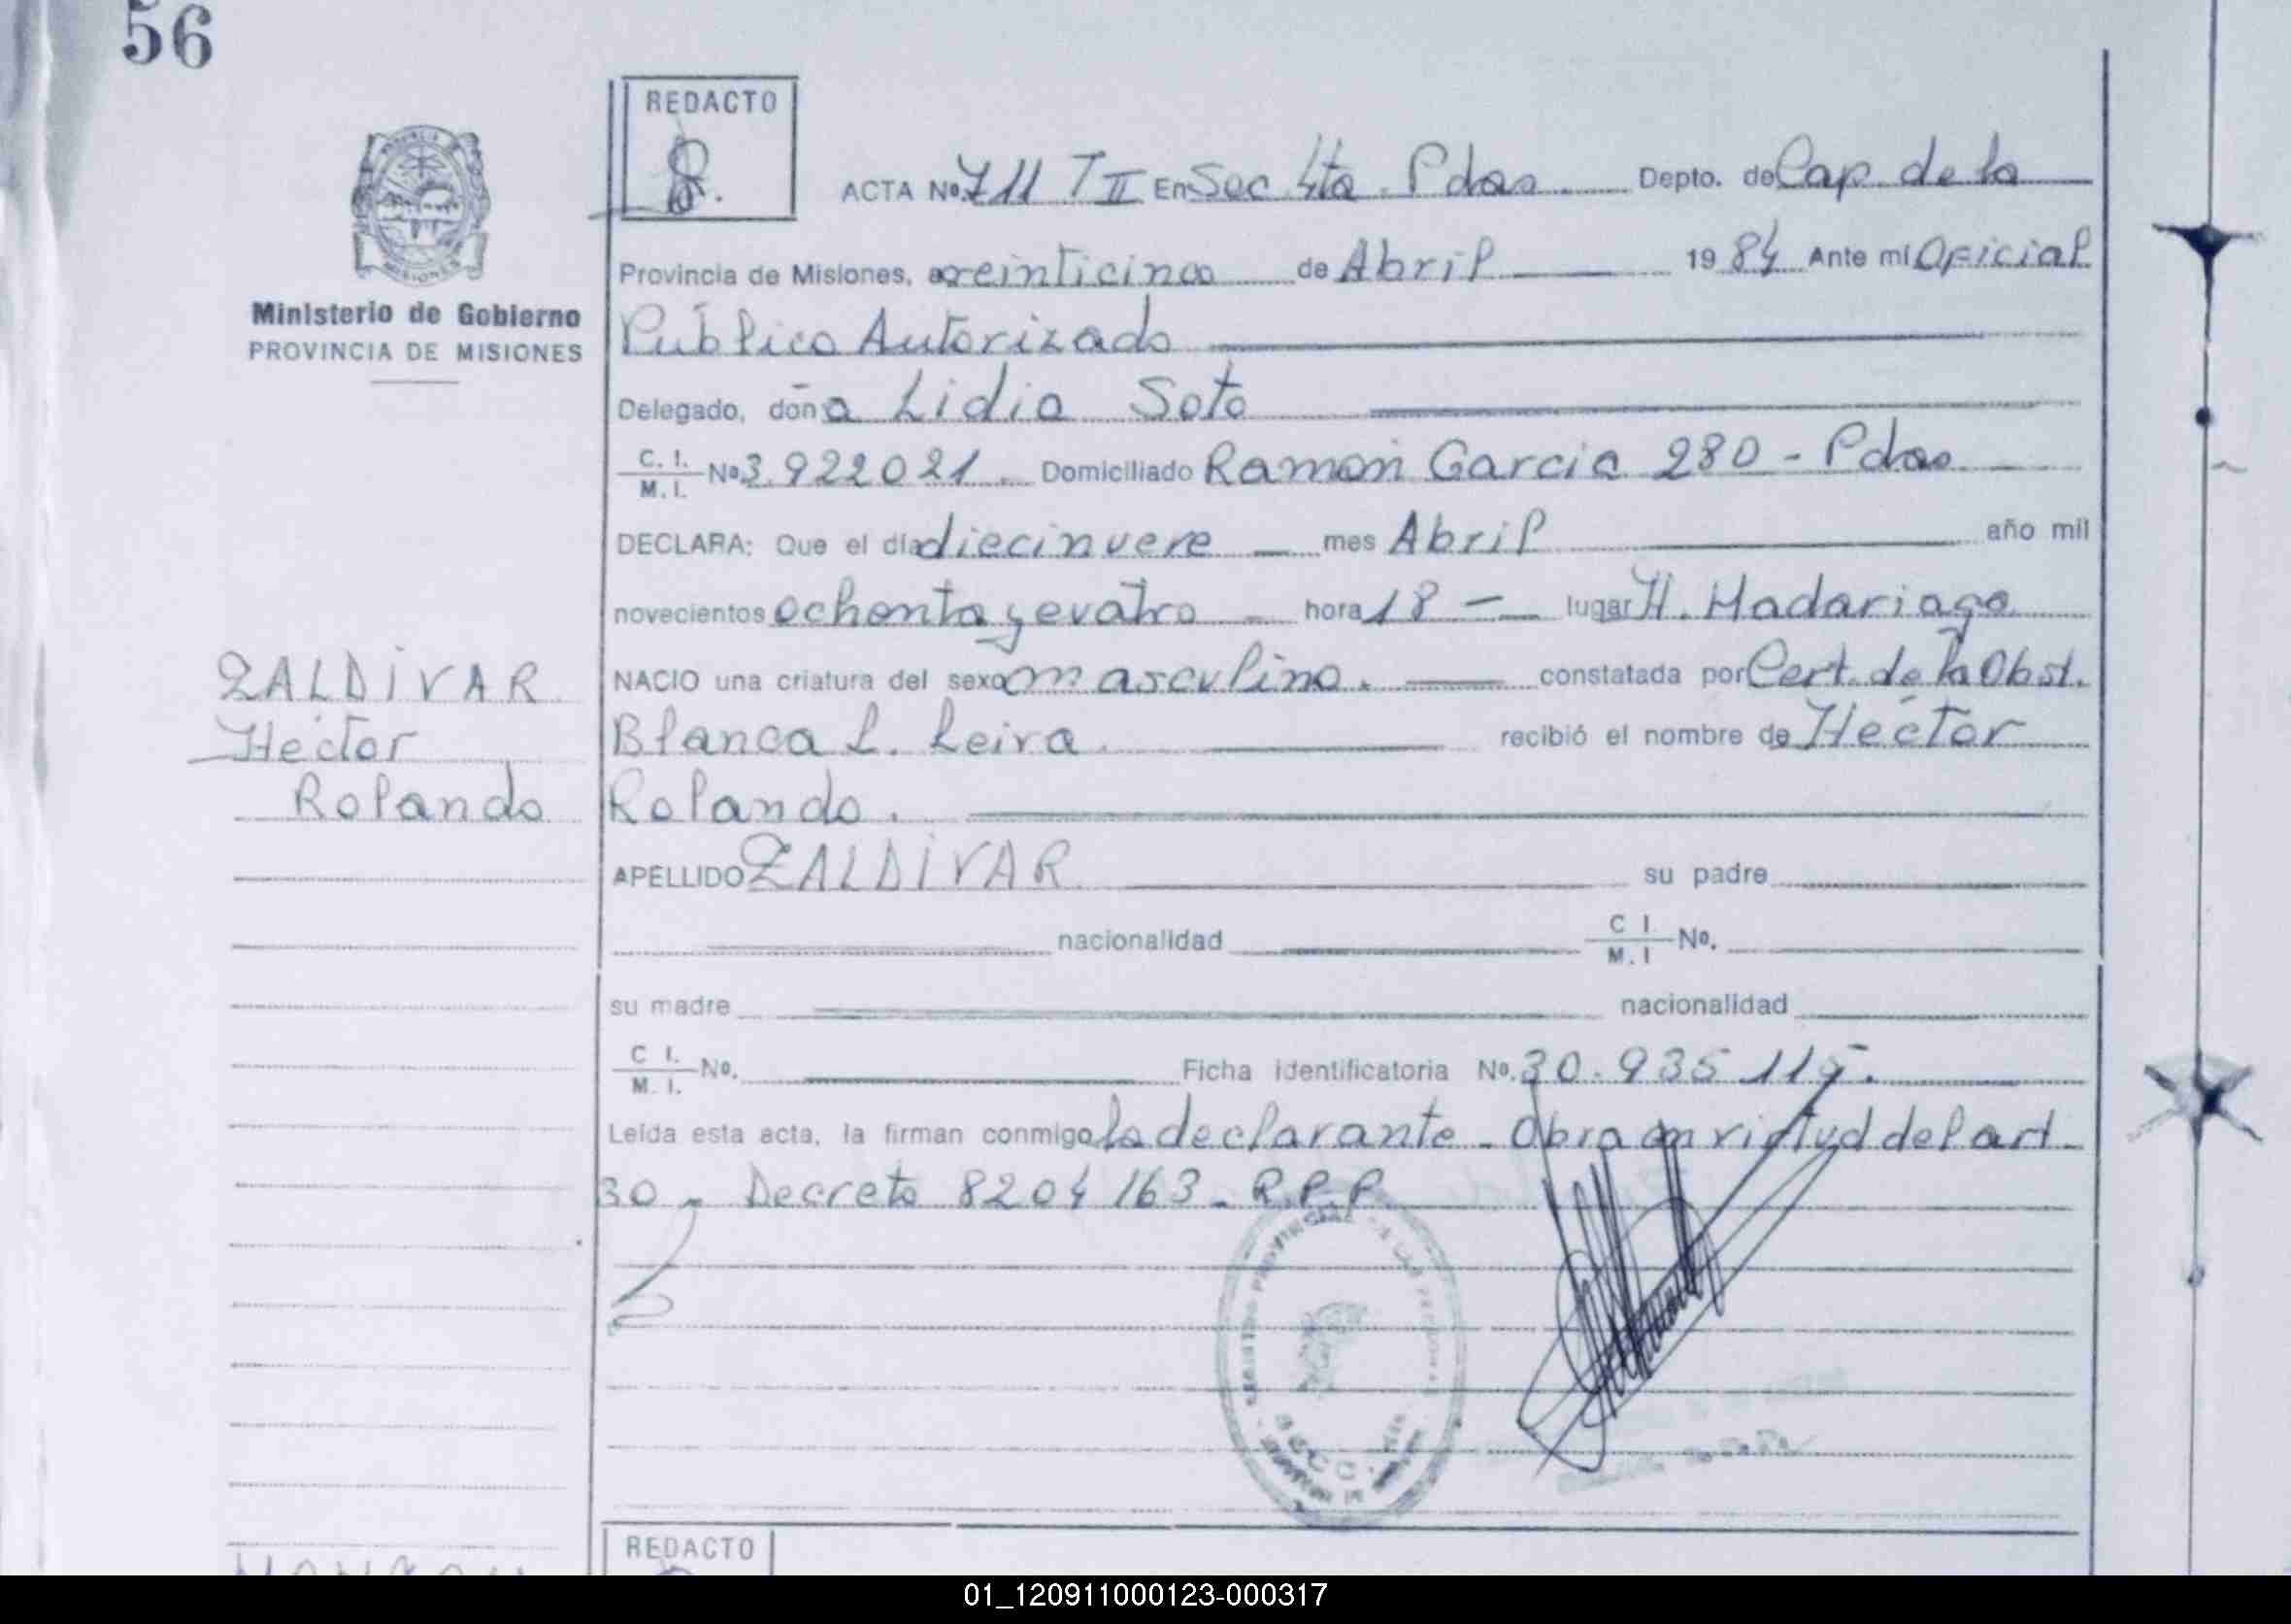 56
REDACTO
ACTA Nº 711 T II En Sec 4ta. Pdas. Depto. de Cap. de la
Provincia de Misiones, a veinticinco de Abril 1984 Ante mí Oficial
Público Autorizado
Ministerio de Gobierno
PROVINCIA DE MISIONES
Delegado, doña Lidia Soto
C. I. M. I. Nº 3.922021. Domiciliado Ramón Garcia 280 - Pdas
DECLARA: Que el día diecinueve mes Abril año mil
novecientos ochenta y cuatro hora 18 - lugar H. Madariaga
NACIO una criatura del sexo masculino. constatada por Cert. de la Obst.
Blanca L. Leiva. recibió el nombre de Héctor
Rolando.
ZALDIVAR
Héctor
Rolando
APELLIDO ZALDIVAR su padre
nacionalidad C I. M. I Nº.
su madre nacionalidad
C I. M. I. Nº. Ficha identificatoria Nº. 30.935 115.
Leída esta acta, la firman conmigo la declarante - Obra en virtud del art.
30 - Decreto 8204/63 - R.P.P
REDACTO
01_120911000123-000317